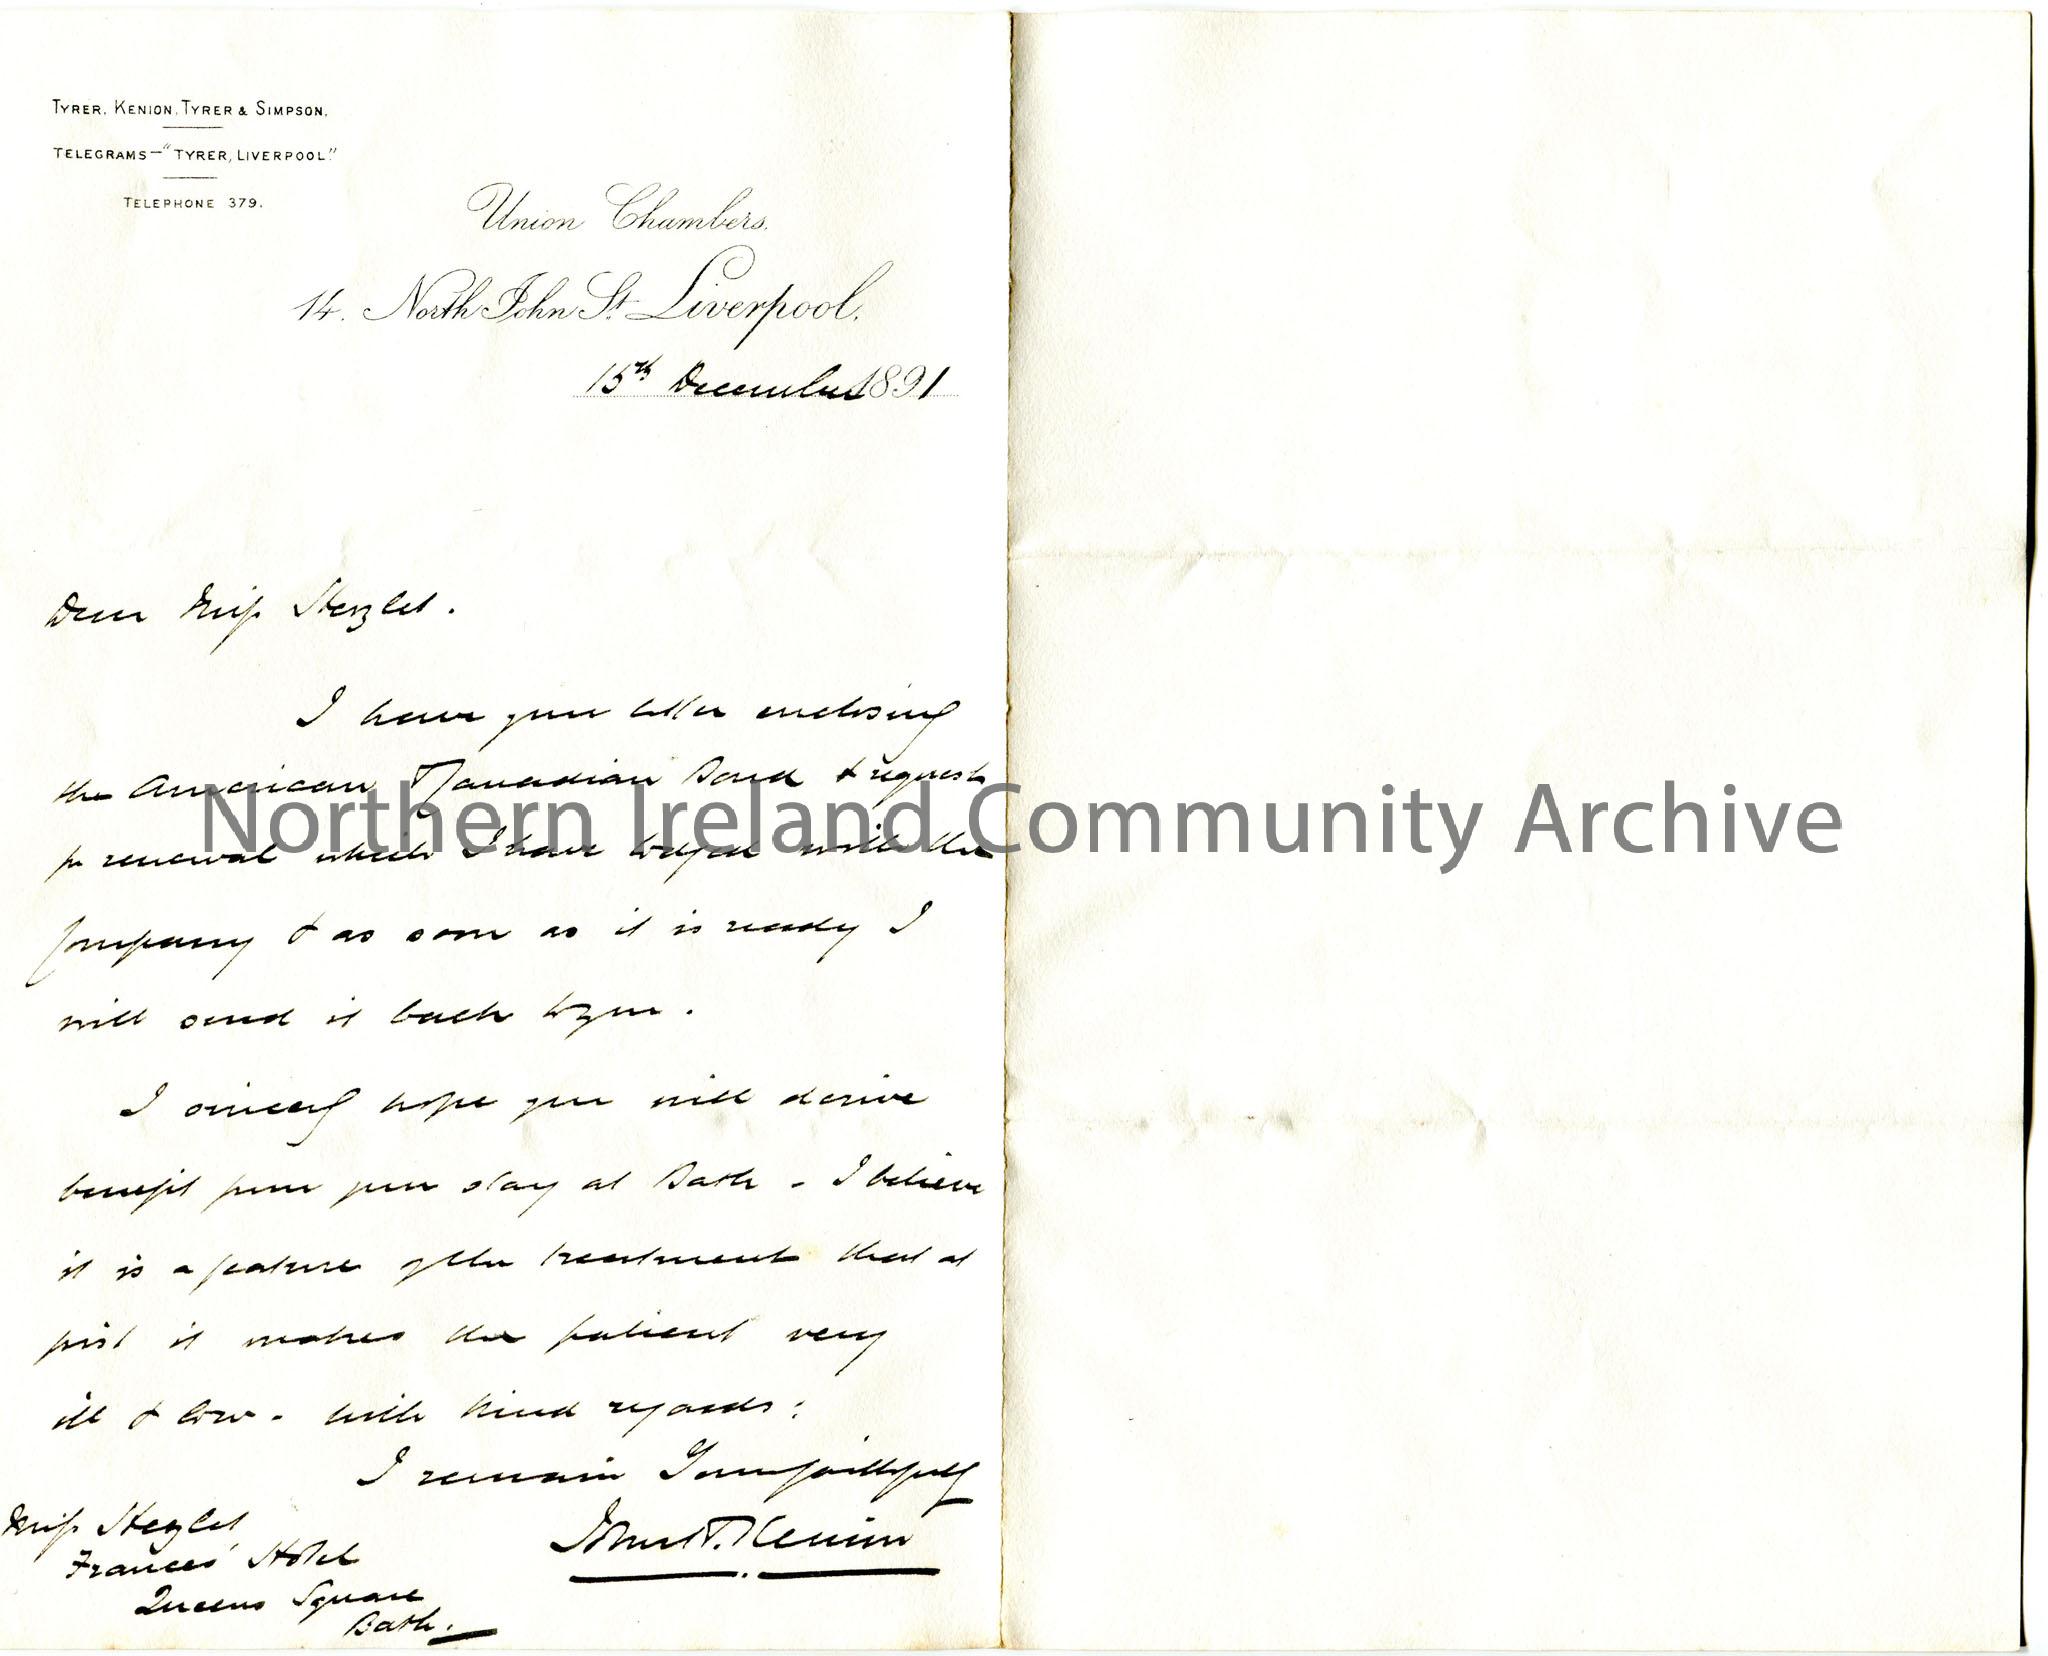 TYRER, KENION, TYRER & SIMPSON.
TELEGRAMS—"TYRER, LIVERPOOL."
TELEPHONE 379.
Union Chambers,
14. North John St. Liverpool,
15th December 1891
Dear Miss Hezlet.
I have your letter enclosing
the American & Canadian Bond & request
for renewal which I have lodged with the
Company & as soon as it is ready I
will send it back to you.
I sincerely hope you will derive
benefit from your stay at Bath - I believe
it is a feature of the treatment that at
first it makes the patient very
ill & low - with kind regards:
I remain Yours faithfully
Kenion
Miss Hezlet
Frances' Hotel
Queens Square
Bath.
Northern Ireland Community Archive